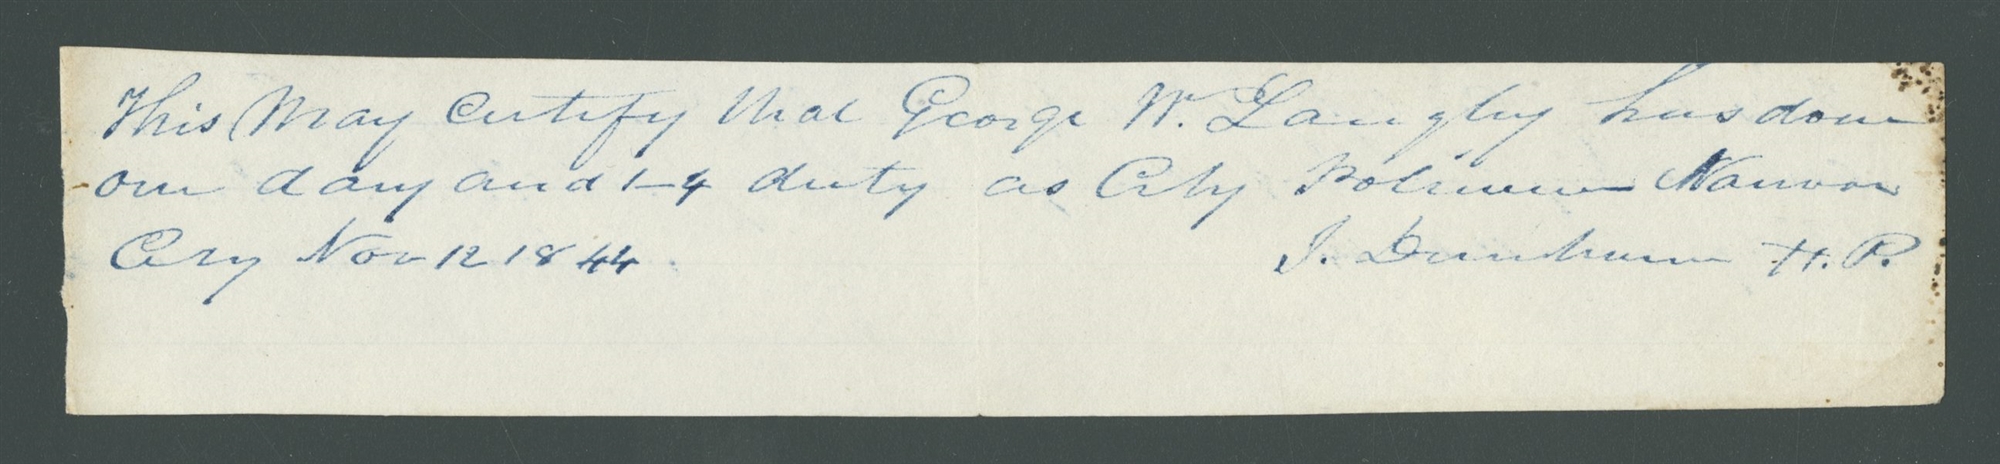 This May Certify that George W. Langley has done
one day and 1-4 duty as City Policeman Nauvoo
City Nov 12 1844 J. Dunham H. P.